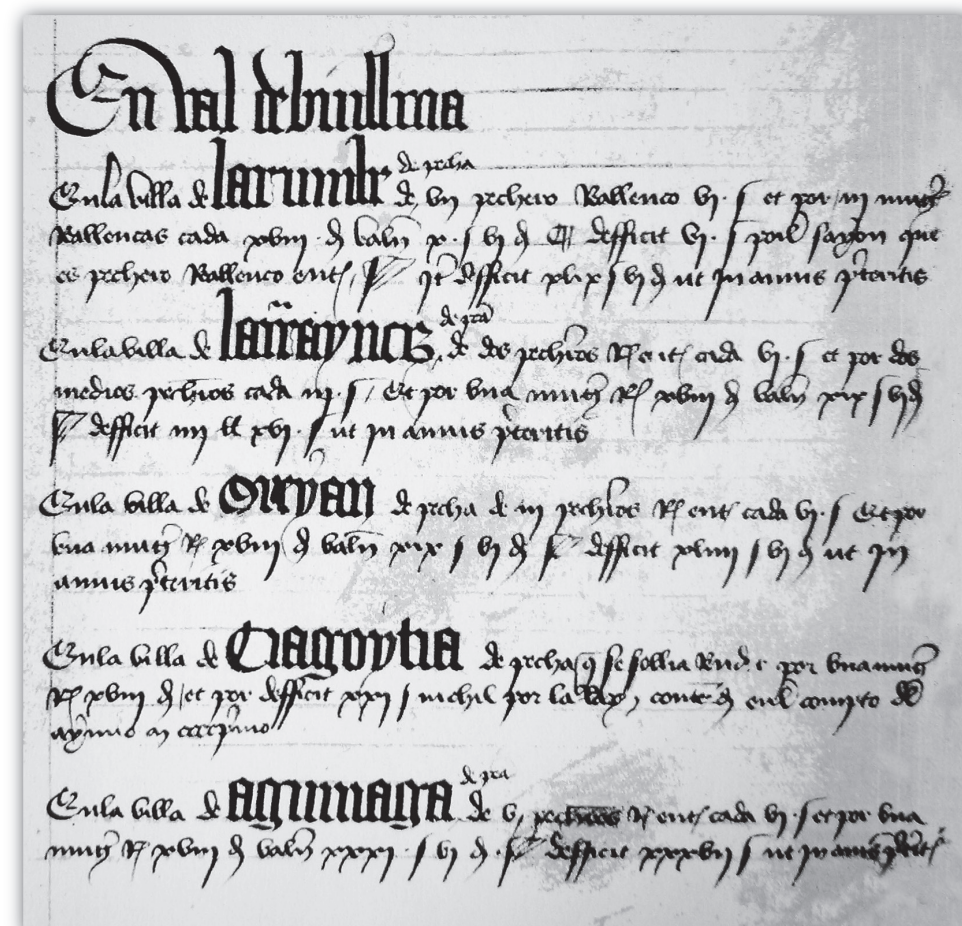 En Val de buillina
En la villa de larumbe de pecha de vn pechero Rallenco vj · s et por iij muges
Rallencas cada xviij · d valen x · s vj d defficit vj · s por el sayon que
es pechero Rallenco ent defficit xlix s vj d ut in annis preteritis
En la villa de larraynciz de pecha de dos pecheros R ent cada vj · s et por dos
medios pecheros cada iij · s / Et por vna muger R xviij d valen xix s vj d
defficit iiij ll xvj · s ut in annis preteritis
En la villa de Oteyça de pecha de iij pecheros R ent cada vj · s Et por
vna muger R xviij d valen xix s vj d defficit xliiij s vj d ut in
annis preteritis
En la villa de Ciagoytia de pecha q se sollia Rend e por vna muger
R xviij d / et por defficit xxi s nichil por la conte en el compto
En la villa de aguinaga de pecha de v pecheros R ent cada vj · s et por vna
muger R xviij d valen xxxj · s vj d · defficit xxxvij s ut in annis